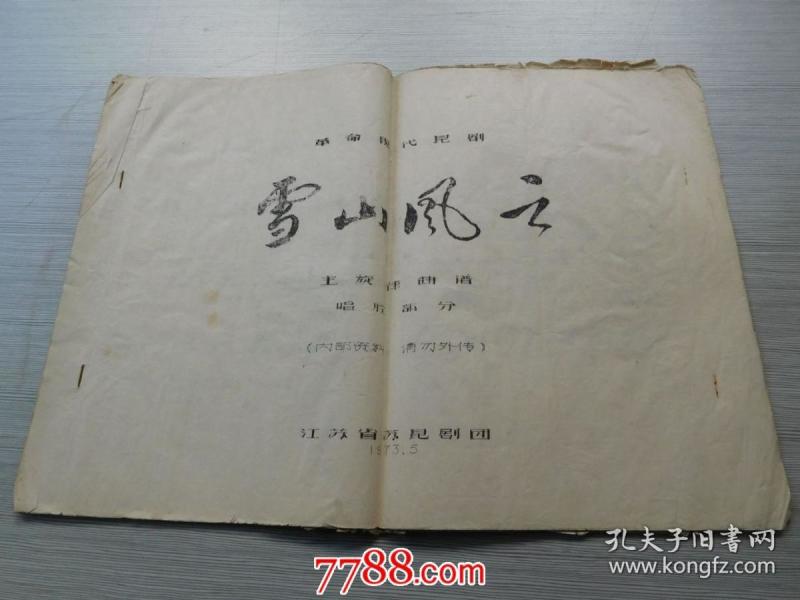 革命现代昆剧
雪山风云
主旋律曲谱
唱腔部分
(内部资料 请勿外传)
江苏省苏昆剧团
1973.5
孔夫子旧書网
www.kongfz.com
7788.com